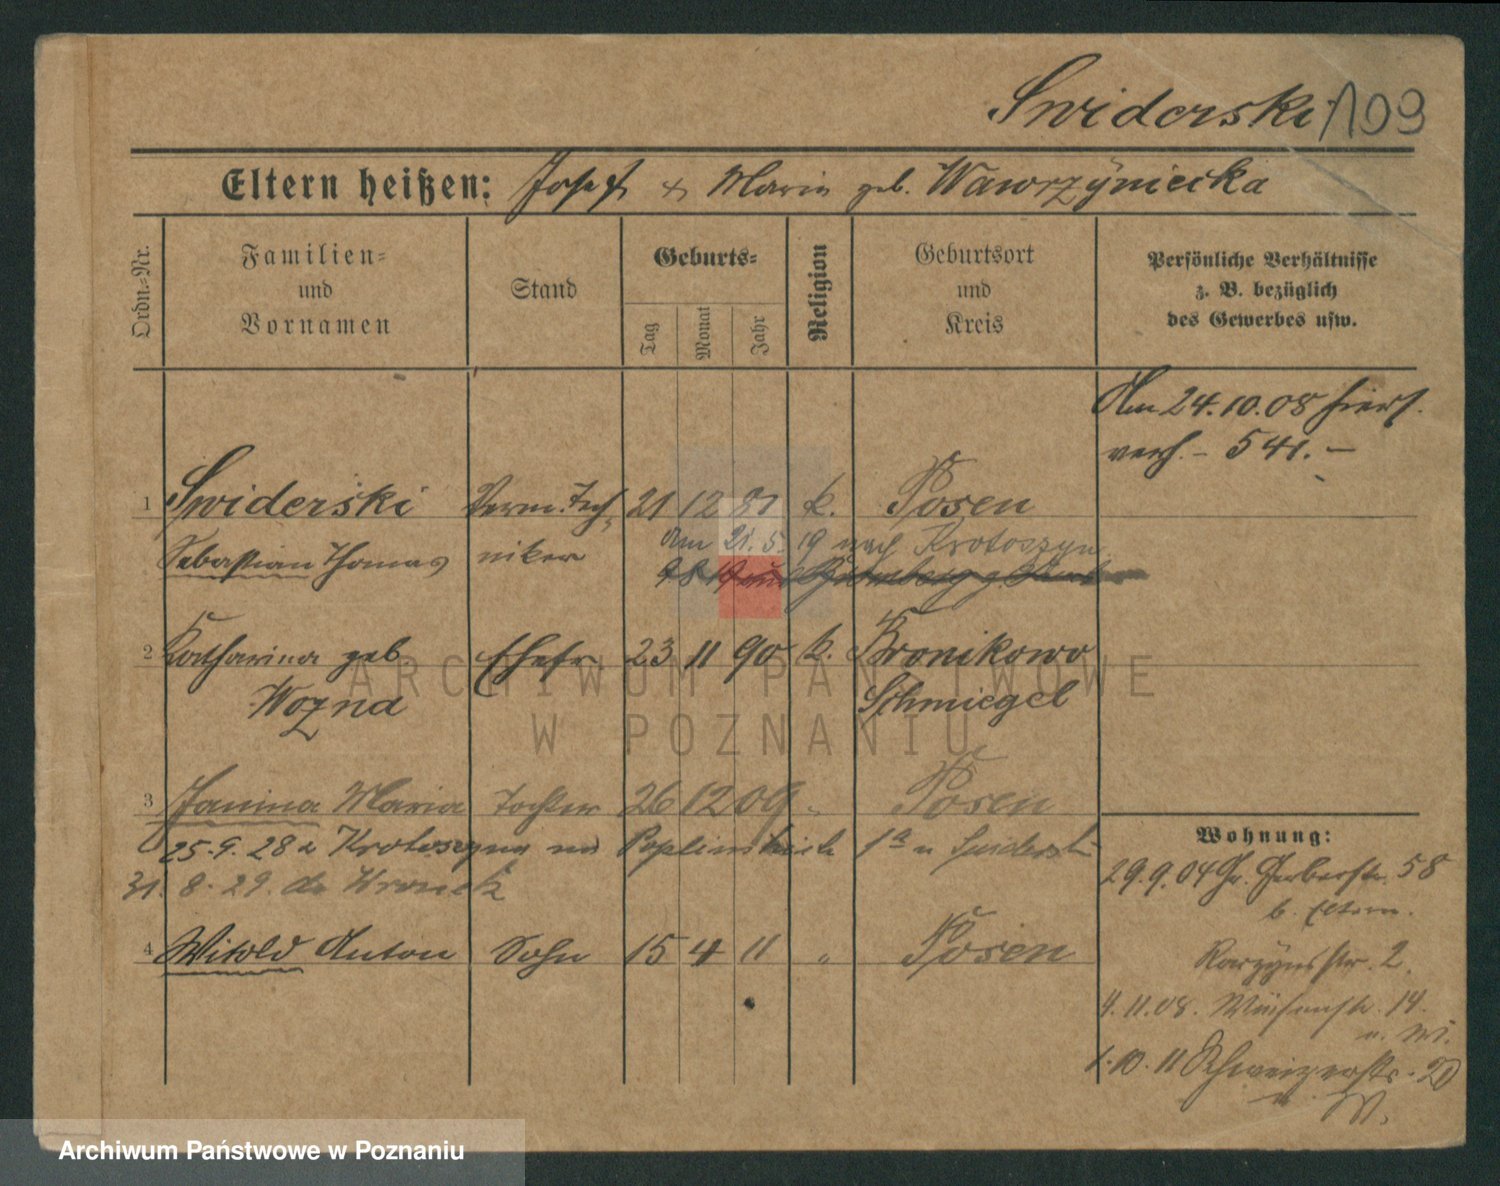 Swiderski 109
Eltern heißen: Josef & Maria geb. Wawrzyniecka
Ordn.-Nr.
Familien-
und
Vornamen
Stand
Geburts-
Tag
Monat
Jahr
Religion
Geburtsort
und
Kreis
Persönliche Verhältnisse
z. B. bezüglich
des Gewerbes usw.
Am 24.10.08 hiers.
verh. - 541. -
1 Swiderski Verm. Tech- 21 12 81 k. Posen
Sebastian Thomas niker
Am 21.5.19 nach Krotoszyn
2 Katharina geb Ehefr. 23 11 90 k. Bronikowo
Wozna Schmiegel
3 Janina Maria Tochter 26 12 09 " Posen
25.9.28 Krotoszyna 1a u Swiderski
31.8.29. do Wronek
4 Witold Anton Sohn 15 4 11 " Posen
Wohnung:
29.9.04 Gr. Gerberstr. 58
b. Eltern.
2.
4.11.08. 14.
u. W.
1.10.11 Schweizerstr. 20
u. W.
ARCHIWUM PAŃSTWOWE
W POZNANIU
Archiwum Państwowe w Poznaniu